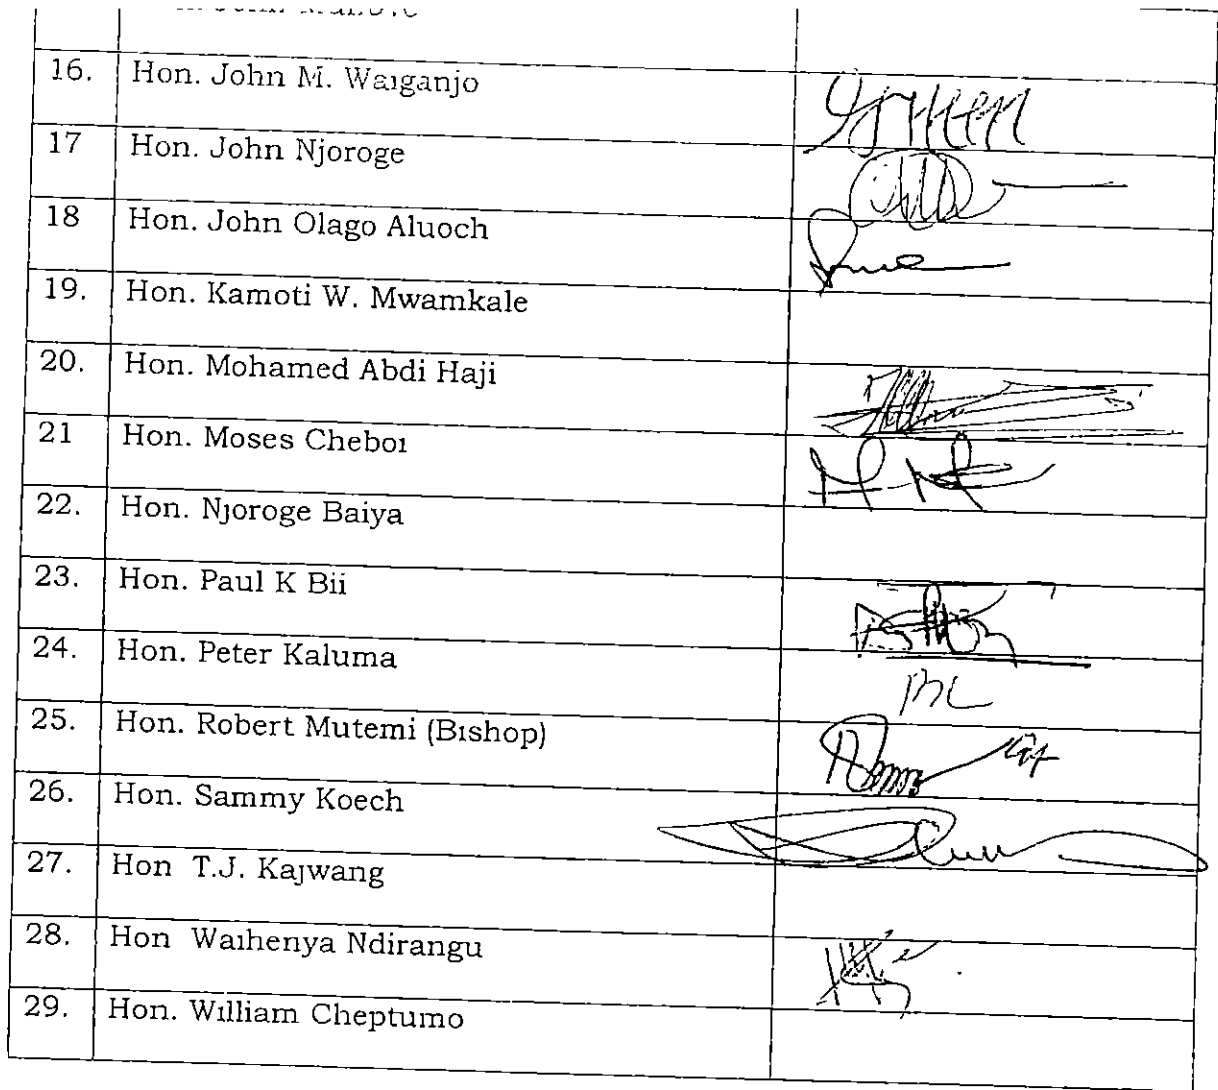 16. Hon. John M. Waiganjo
17 Hon. John Njoroge
18 Hon. John Olago Aluoch
19. Hon. Kamoti W. Mwamkale
20. Hon. Mohamed Abdi Haji
21 Hon. Moses Cheboi
22. Hon. Njoroge Baiya
23. Hon. Paul K Bii
24. Hon. Peter Kaluma
25. Hon. Robert Mutemi (Bishop)
26. Hon. Sammy Koech
27. Hon T.J. Kajwang
28. Hon Waihenya Ndirangu
29. Hon. William Cheptumo